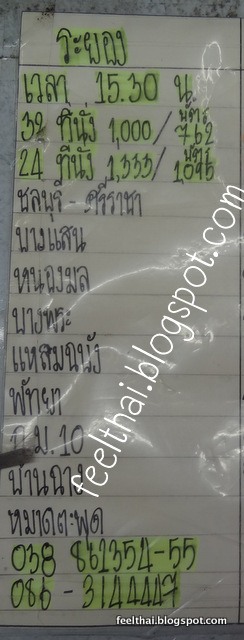 ระยอง
เวลา 15.30 น.
32 ที่นั่ง 1,000/ บัตร 762
24 ที่นั่ง 1,333/ บัตร 1,095
ชลบุรี - ศรีราชา
บางแสน
หนองมล
บางพระ
แหลมฉบัง
พัทยา
ก.ม. 10
บ้านฉาง
หมาดตะพุด
038 861354-55
086 - 3144447
feelthai.blogspot.com
feelthai.blogspot.com